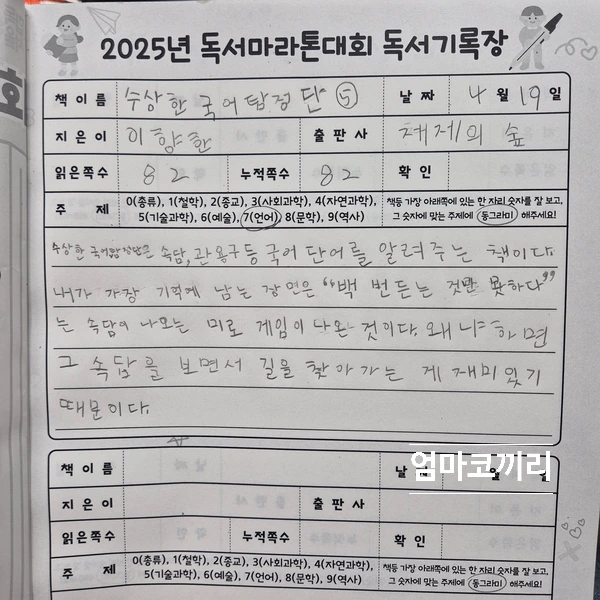 2025년 독서마라톤대회 독서기록장
책 이름 수상한 국어탐정단 ⑤ 날짜 4월 19일
지은이 이향안 출판사 채제의 숲
읽은쪽수 82 누적쪽수 82 확인
주제 0(종류), 1(철학), 2(종교), 3(사회과학), 4(자연과학), 5(기술과학), 6(예술), 7(언어), 8(문학), 9(역사)
책등 가장 아래쪽에 있는 한 자리 숫자를 잘 보고, 그 숫자에 맞는 주제에 동그라미 해주세요!
수상한 국어탐정단은 속담, 관용구 등 국어 단어를 알려주는 책이다.
내가 가장 기억에 남는 장면은 "백 번 듣는 것만 못하다"
는 속담이 나오는 미로 게임이 나온 것이다. 왜냐하면
그 속담을 보면서 길을 찾아가는 게 재미있기
때문이다.
책 이름 날짜 월 일
엄마코끼리
지은이 출판사
읽은쪽수 누적쪽수 확인
주제 0(종류), 1(철학), 2(종교), 3(사회과학), 4(자연과학), 5(기술과학), 6(예술), 7(언어), 8(문학), 9(역사)
책등 가장 아래쪽에 있는 한 자리 숫자를 잘 보고, 그 숫자에 맞는 주제에 동그라미 해주세요!